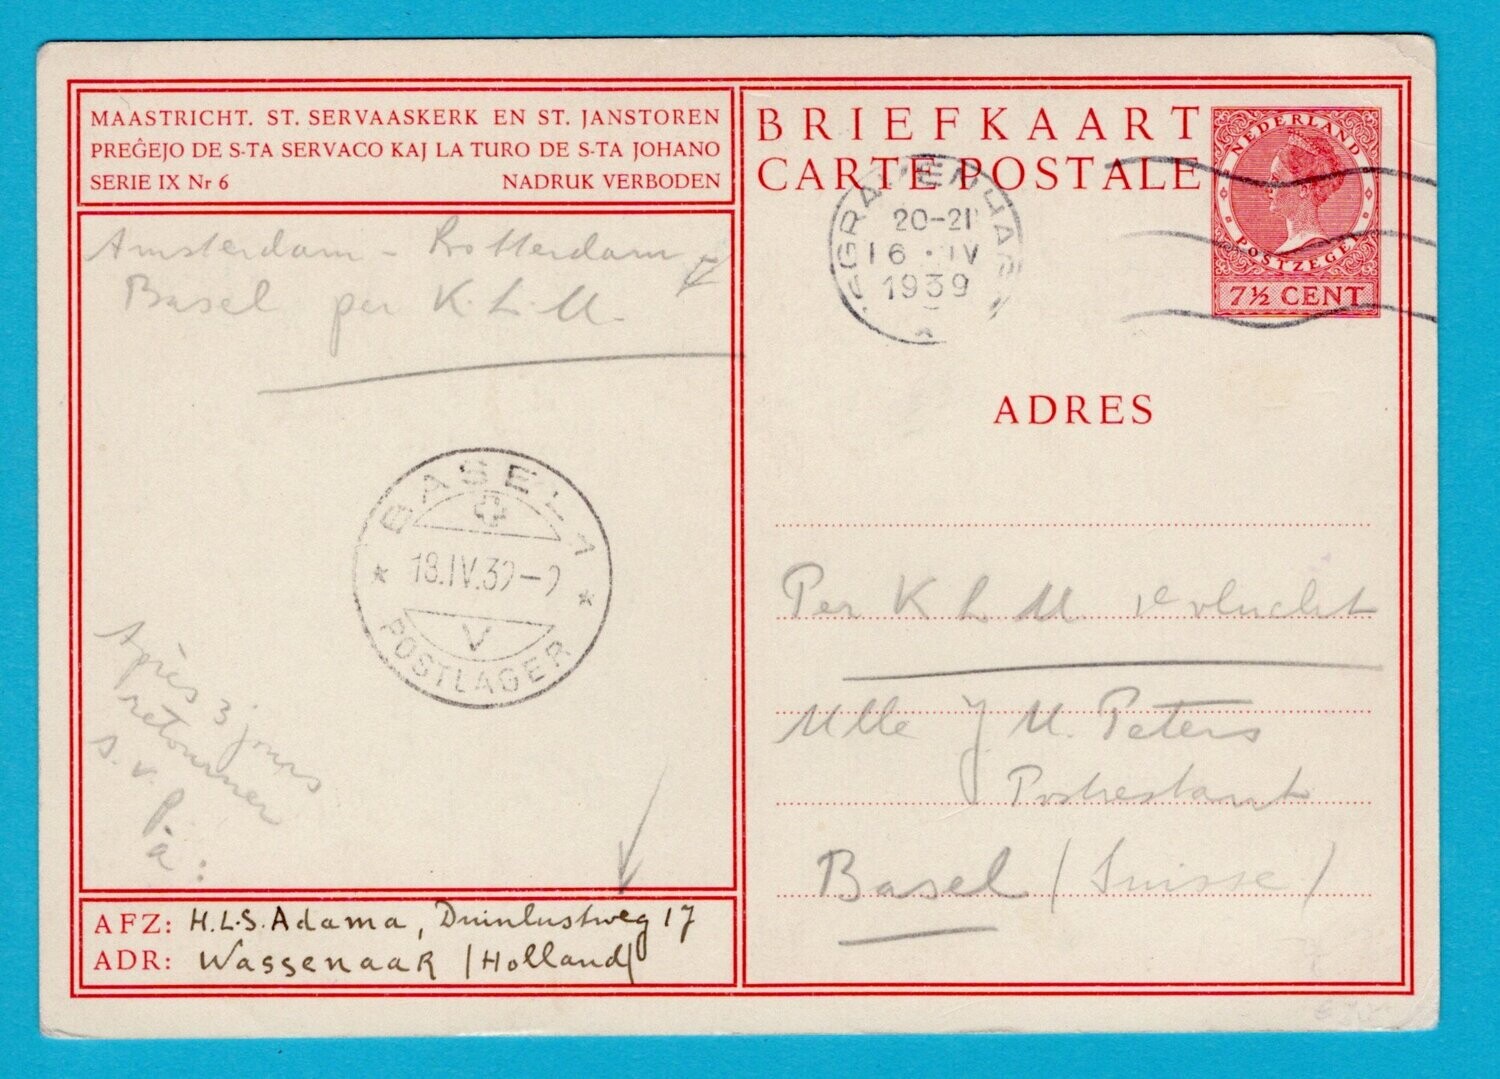 MAASTRICHT. ST. SERVAASKERK EN ST. JANSTOREN
PREĜEJO DE S-TA SERVACO KAJ LA TURO DE S-TA JOHANO
SERIE IX Nr 6 NADRUK VERBODEN
Amsterdam - Rotterdam
Basel per K.L.M.
BASEL 1
18.IV.39-9
V
POSTLAGER
Après 3 jours
retourner
s.v.p.
à:
AFZ: H.L.S. Adama, Duinlustweg 17
ADR: Wassenaar (Holland)
BRIEFKAART
CARTE POSTALE
NEDERLAND
POSTZEGEL
7½ CENT
'S GRAVENHAGE
20-21
16.IV
1939
ADRES
Per K L M 1e vlucht
Mlle J. M. Peters
Postrestant
Basel (Suisse)